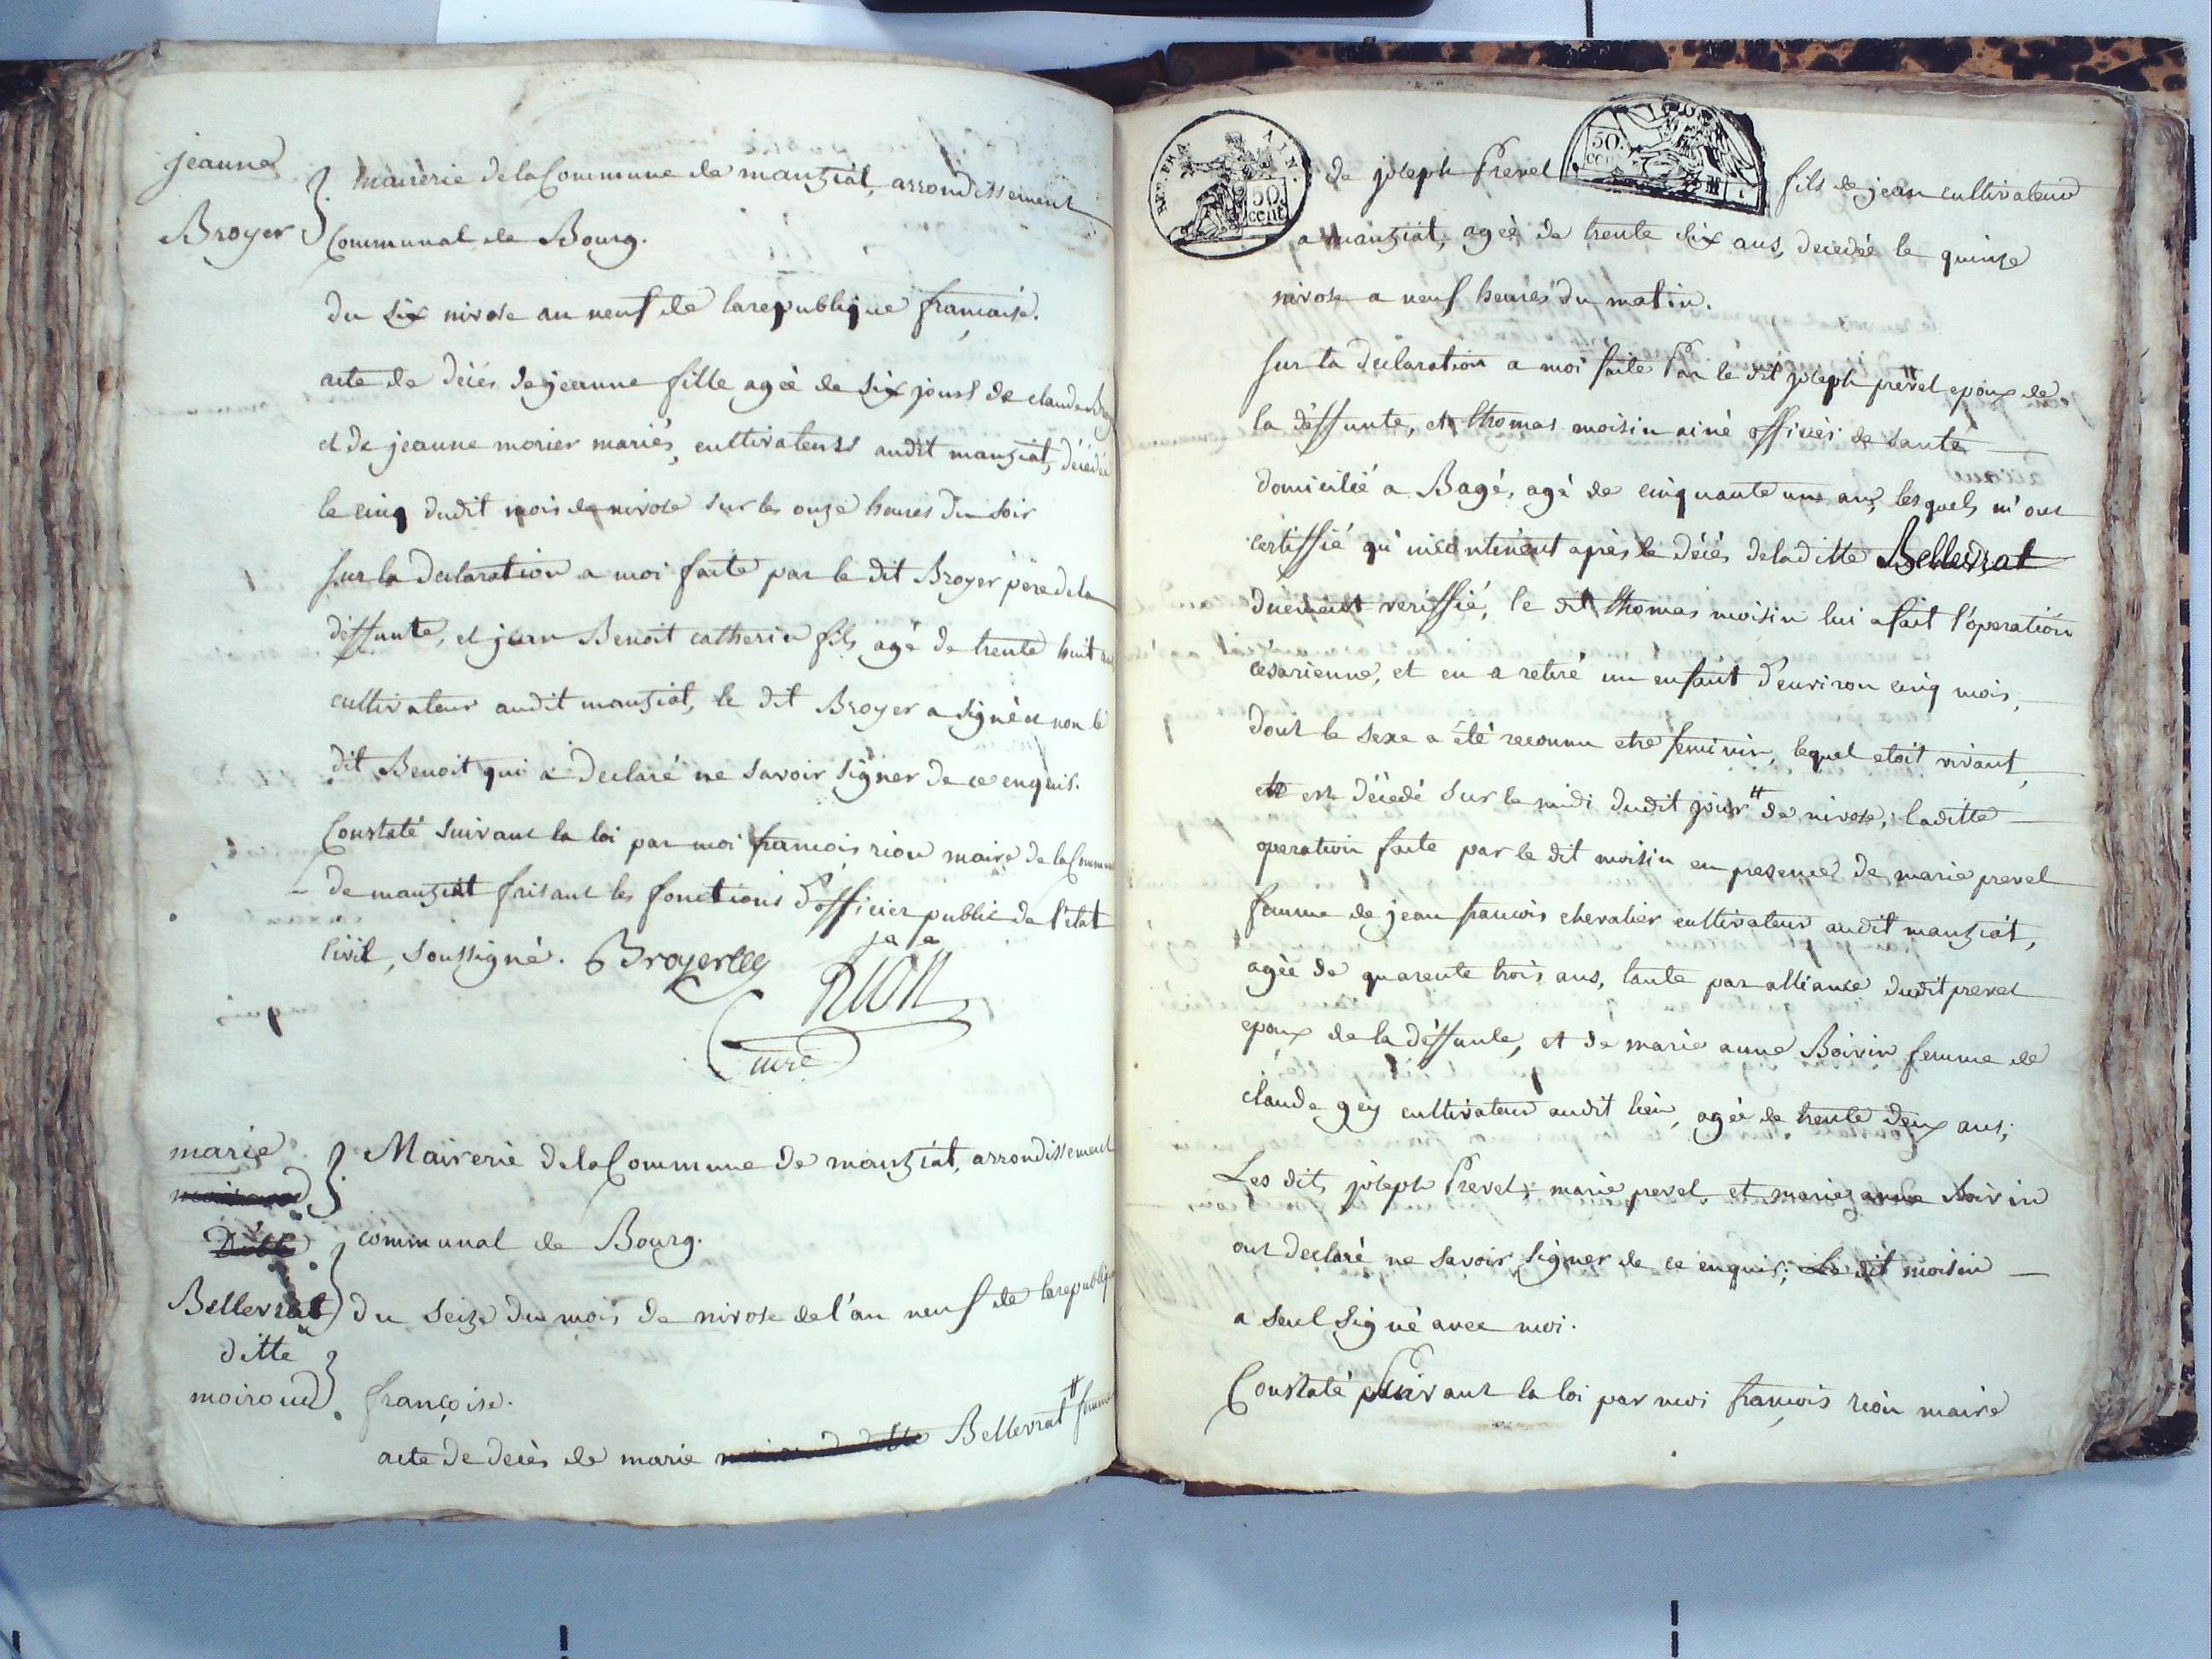 jeanne
Broyer
Mairerie de la Commune de manziat, arrondissement
Communal de Bourg.
du six nivose an neuf de la republique francaise.
acte de décés de jeanne fille agée de six jours de claude Broy
et de jeanne morier mariés, cultivateurs audit manziat, décédée
le cinq dudit mois de nivose sur les onze heures du soir
sur la declaration a moi faite par le dit Broyer pere de la
déffunte, et jean Benoit catherin fils, agé de trente huit ans
cultivateur audit manziat, le dit Broyer a signé et non le
dit Benoit qui a declaré ne savoir signer de ce enquis.
Constaté suivant la loi par moi francois rion maire de la Commune
de manziat faisant les fonctions d'officier public de l'etat
Civil, soussigné. Broyer
Rion
maire
marie
Bellevrat
ditte
moiroud
Mairerie de la Commune de manziat, arrondissement
communal de Bourg.
du seize du mois de nivose de l'an neuf de la republique
françoise.
acte de decès de marie Bellevrat # femme
REP. FRA. AIN.
50 cent
50. cent
de joseph Prevel fils de jean cultivateur
a manziat, agée de trente six ans, decedée le quinze
nivose a neuf heures du matin.
sur la declaration a moi faite Par le dit joseph prevel epoux de
la déffunte, et thomas moisin ainé officier de santé
domicilié a Bagé, agé de cinquante un ans, lesquels m'ont
certiffié qu'incontinent après le décés de la ditte Bellevrat
duement veriffié, le dit thomas moisin lui a fait l'operation
cesarienne, et en a retiré un enfant d'environ cinq mois,
dont le sexe a été reconnu etre feminin, lequel etoit vivant,
et est décedé sur le midi dudit jour # de nivose, laditte
operation faite par le dit moisin en presence de marie prevel
femme de jean francois chevalier cultivateur audit manziat,
agée de quarente trois ans, tante par alliance dudit prevel
epoux de la déffunte, et de marie anne Boivin femme de
claude gey cultivateur audit lieu, agée de trente deux ans;
Les dits joseph Prevel, marie prevel et marie anne Boivin
ont declaré ne savoir signer de ce enquis; Le dit moisin
a seul signé avec moi.
Constaté suivant la loi par moi francois rion maire